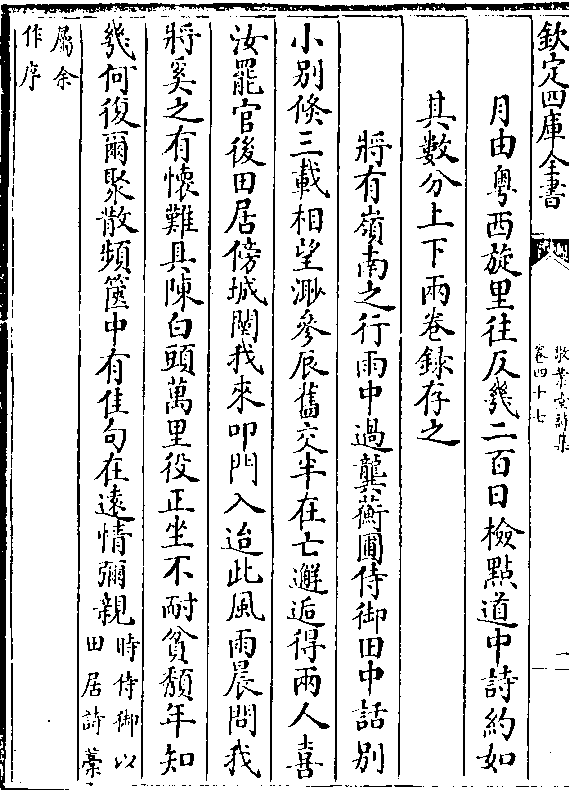 欽定四庫全書
敬業堂詩集
卷四十七
月由粵西旋里往反幾二百日檢點道中詩約如
其數分上下兩卷録存之
將有嶺南之行雨中過龔蘅圃侍御田中話别
小别倏三載相望渺參辰舊交半在亡邂逅得兩人喜
汝罷官後田居傍城闉我來叩門入迨此風雨晨問我
將奚之有懷難具陳白頭萬里役正坐不耐貧頽年知
幾何復爾聚散頻篋中有佳句在遠情彌親時侍御以
田居詩藁
屬余
作序